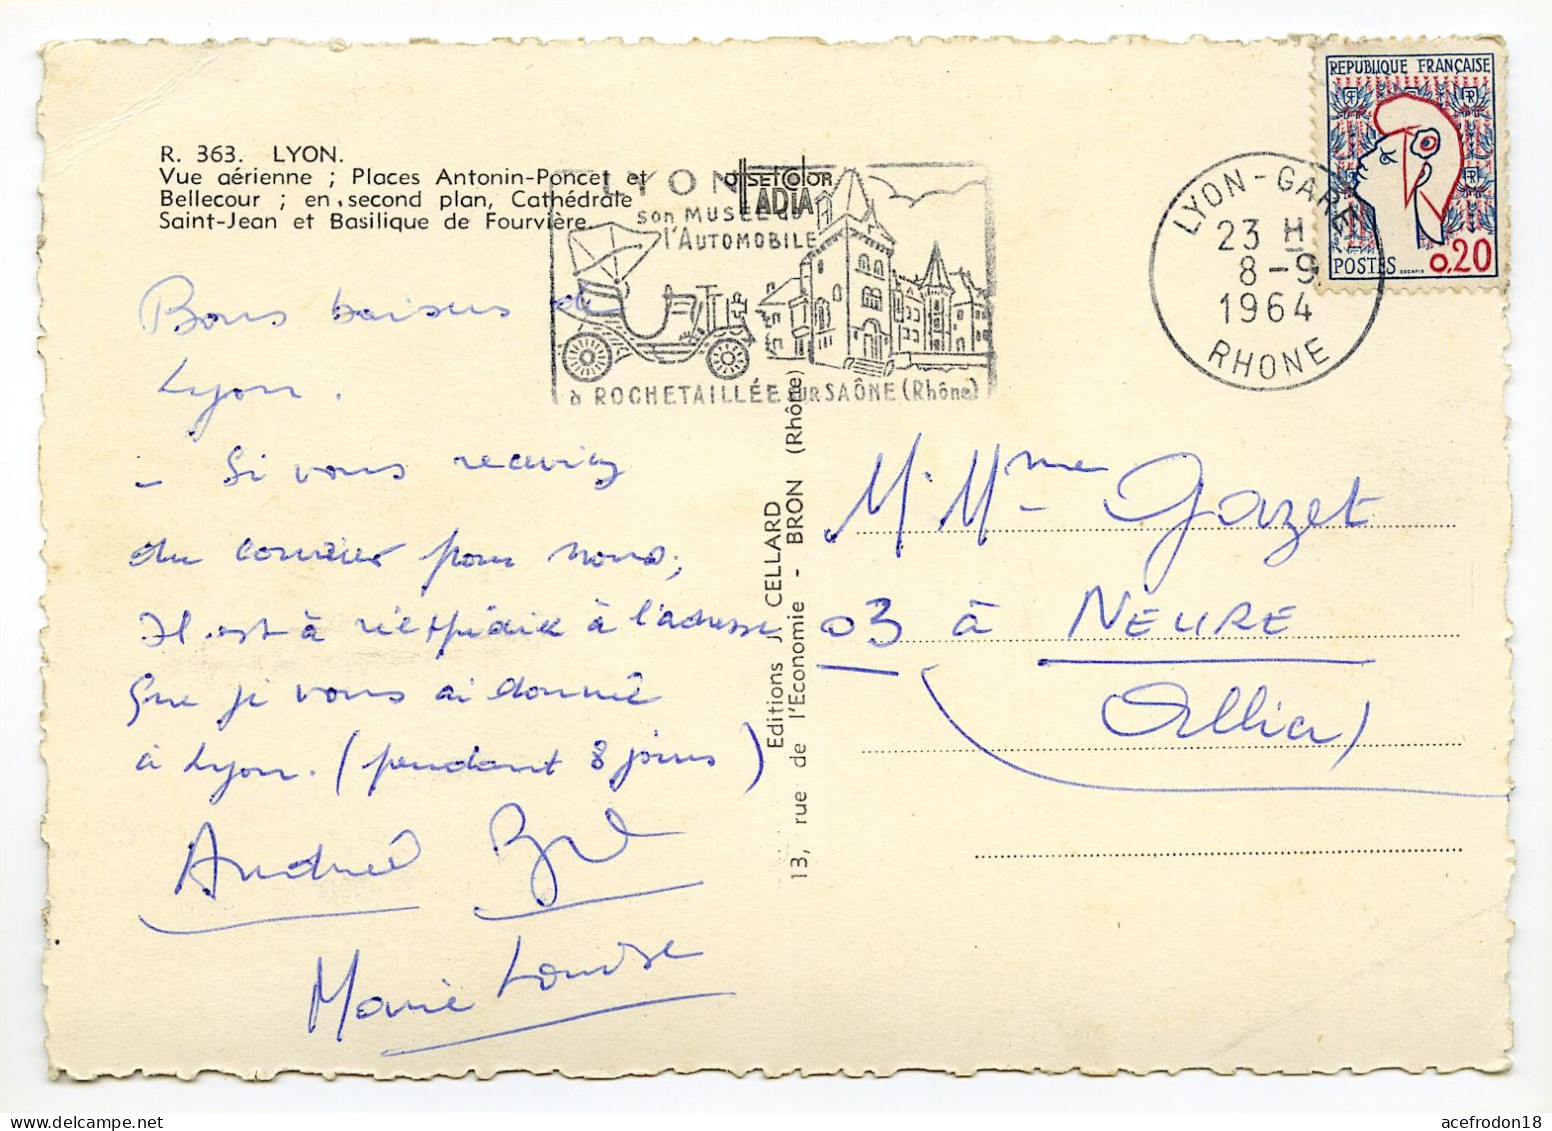 R. 363. LYON.
Vue aérienne ; Places Antonin-Poncet et
Bellecour ; en second plan, Cathédrale
Saint-Jean et Basilique de Fourvière.
LYON
son MUSÉE de
l'AUTOMOBILE
à ROCHETAILLÉE SUR SAÔNE (Rhône)
OFFSETCOLOR
IADIA
LYON-GARE
23 H
8-9
1964
RHONE
REPUBLIQUE FRANÇAISE
POSTES
DECARIS
0,20
Bons baisers de
Lyon.
- Si vous receviez
du courrier pour nous,
Il est à réexpédier à l'adresse
que je vous ai donné
à Lyon. (pendant 8 jours)
André
Marie Louise
Editions J. CELLARD
13, rue de l'Economie - BRON (Rhône)
M. Mme Gazet
03 à NEURE
(Allier)
acefrodon18